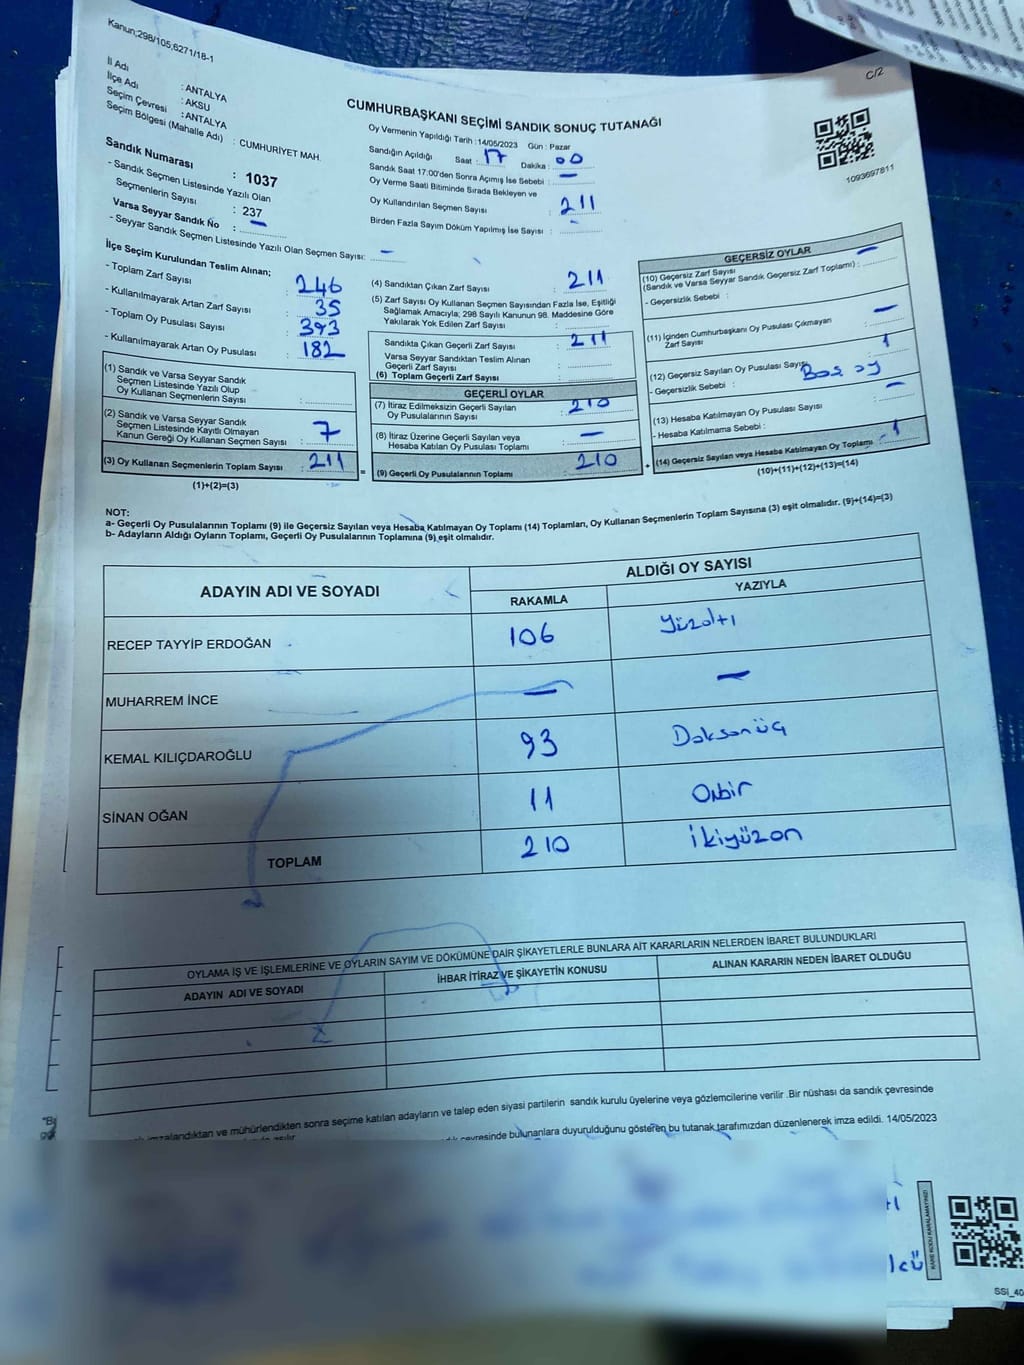 Kanun;298/105,6271/18-1
C/2
İl Adı : ANTALYA
İlçe Adı : AKSU
Seçim Çevresi : ANTALYA
Seçim Bölgesi (Mahalle Adı) : CUMHURİYET MAH.
Sandık Numarası : 1037
- Sandık Seçmen Listesinde Yazılı Olan
Seçmenlerin Sayısı : 237
Varsa Seyyar Sandık No : —
- Seyyar Sandık Seçmen Listesinde Yazılı Olan Seçmen Sayısı: —
CUMHURBAŞKANI SEÇİMİ SANDIK SONUÇ TUTANAĞI
Oy Vermenin Yapıldığı Tarih :14/05/2023 Gün : Pazar
Sandığın Açıldığı Saat : 17 Dakika : 00
Sandık Saat 17:00'den Sonra Açımış İse Sebebi : —
Oy Verme Saati Bitiminde Sırada Bekleyen ve
Oy Kullandırılan Seçmen Sayısı : 211
Birden Fazla Sayım Döküm Yapılmış İse Sayısı : -
1093697811
İlçe Seçim Kurulundan Teslim Alınan;
- Toplam Zarf Sayısı : 246
- Kullanılmayarak Artan Zarf Sayısı : 35
- Toplam Oy Pusulası Sayısı : 393
- Kullanılmayarak Artan Oy Pusulası : 182
(1) Sandık ve Varsa Seyyar Sandık
Seçmen Listesinde Yazılı Olup
Oy Kullanan Seçmenlerin Sayısı :
(2) Sandık ve Varsa Seyyar Sandık
Seçmen Listesinde Kayıtlı Olmayan
Kanun Gereği Oy Kullanan Seçmen Sayısı : 7
(3) Oy Kullanan Seçmenlerin Toplam Sayısı : 211
(1)+(2)=(3)
(4) Sandıktan Çıkan Zarf Sayısı : 211
(5) Zarf Sayısı Oy Kullanan Seçmen Sayısından Fazla İse, Eşitliği
Sağlamak Amacıyla; 298 Sayılı Kanunun 98. Maddesine Göre
Yakılarak Yok Edilen Zarf Sayısı :
Sandıkta Çıkan Geçerli Zarf Sayısı : 211
Varsa Seyyar Sandıktan Teslim Alınan
Geçerli Zarf Sayısı :
(6) Toplam Geçerli Zarf Sayısı :
GEÇERLİ OYLAR
(7) İtiraz Edilmeksizin Geçerli Sayılan
Oy Pusulalarının Sayısı : 210
(8) İtiraz Üzerine Geçerli Sayılan veya
Hesaba Katılan Oy Pusulası Toplamı : —
= (9) Geçerli Oy Pusulalarının Toplamı : 210
GEÇERSİZ OYLAR
(10) Geçersiz Zarf Sayısı
(Sandık ve Varsa Seyyar Sandık Geçersiz Zarf Toplamı) : —
- Geçersizlik Sebebi :
(11) İçinden Cumhurbaşkanı Oy Pusulası Çıkmayan
Zarf Sayısı : —
(12) Geçersiz Sayılan Oy Pusulası Sayısı : 1
- Geçersizlik Sebebi : Boş oy
(13) Hesaba Katılmayan Oy Pusulası Sayısı : —
- Hesaba Katılmama Sebebi :
+ (14) Geçersiz Sayılan veya Hesaba Katılmayan Oy Toplamı : 1
(10)+(11)+(12)+(13)=(14)
NOT:
a- Geçerli Oy Pusulalarının Toplamı (9) ile Geçersiz Sayılan veya Hesaba Katılmayan Oy Toplamı (14) Toplamları, Oy Kullanan Seçmenlerin Toplam Sayısına (3) eşit olmalıdır. (9)+(14)=(3)
b- Adayların Aldığı Oyların Toplamı, Geçerli Oy Pusulalarının Toplamına (9) eşit olmalıdır.
ADAYIN ADI VE SOYADI
ALDIĞI OY SAYISI
RAKAMLA YAZIYLA
RECEP TAYYİP ERDOĞAN 106 Yüzaltı
MUHARREM İNCE — —
KEMAL KILIÇDAROĞLU 93 Doksanüç
SİNAN OĞAN 11 Onbir
TOPLAM 210 İkiyüzon
OYLAMA İŞ VE İŞLEMLERİNE VE OYLARIN SAYIM VE DÖKÜMÜNE DAİR ŞİKAYETLERLE BUNLARA AİT KARARLARIN NELERDEN İBARET BULUNDUKLARI
ADAYIN ADI VE SOYADI İHBAR İTİRAZ VE ŞİKAYETİN KONUSU ALINAN KARARIN NEDEN İBARET OLDUĞU
imzalandıktan ve mühürlendikten sonra seçime katılan adayların ve talep eden siyasi partilerin sandık kurulu üyelerine veya gözlemcilerine verilir .Bir nüshası da sandık çevresinde
çevresinde bulunanlara duyurulduğunu gösteren bu tutanak tarafımızdan düzenlenerek imza edildi. 14/05/2023
KARE KODU KARALAMAYINIZ!
SSI_40